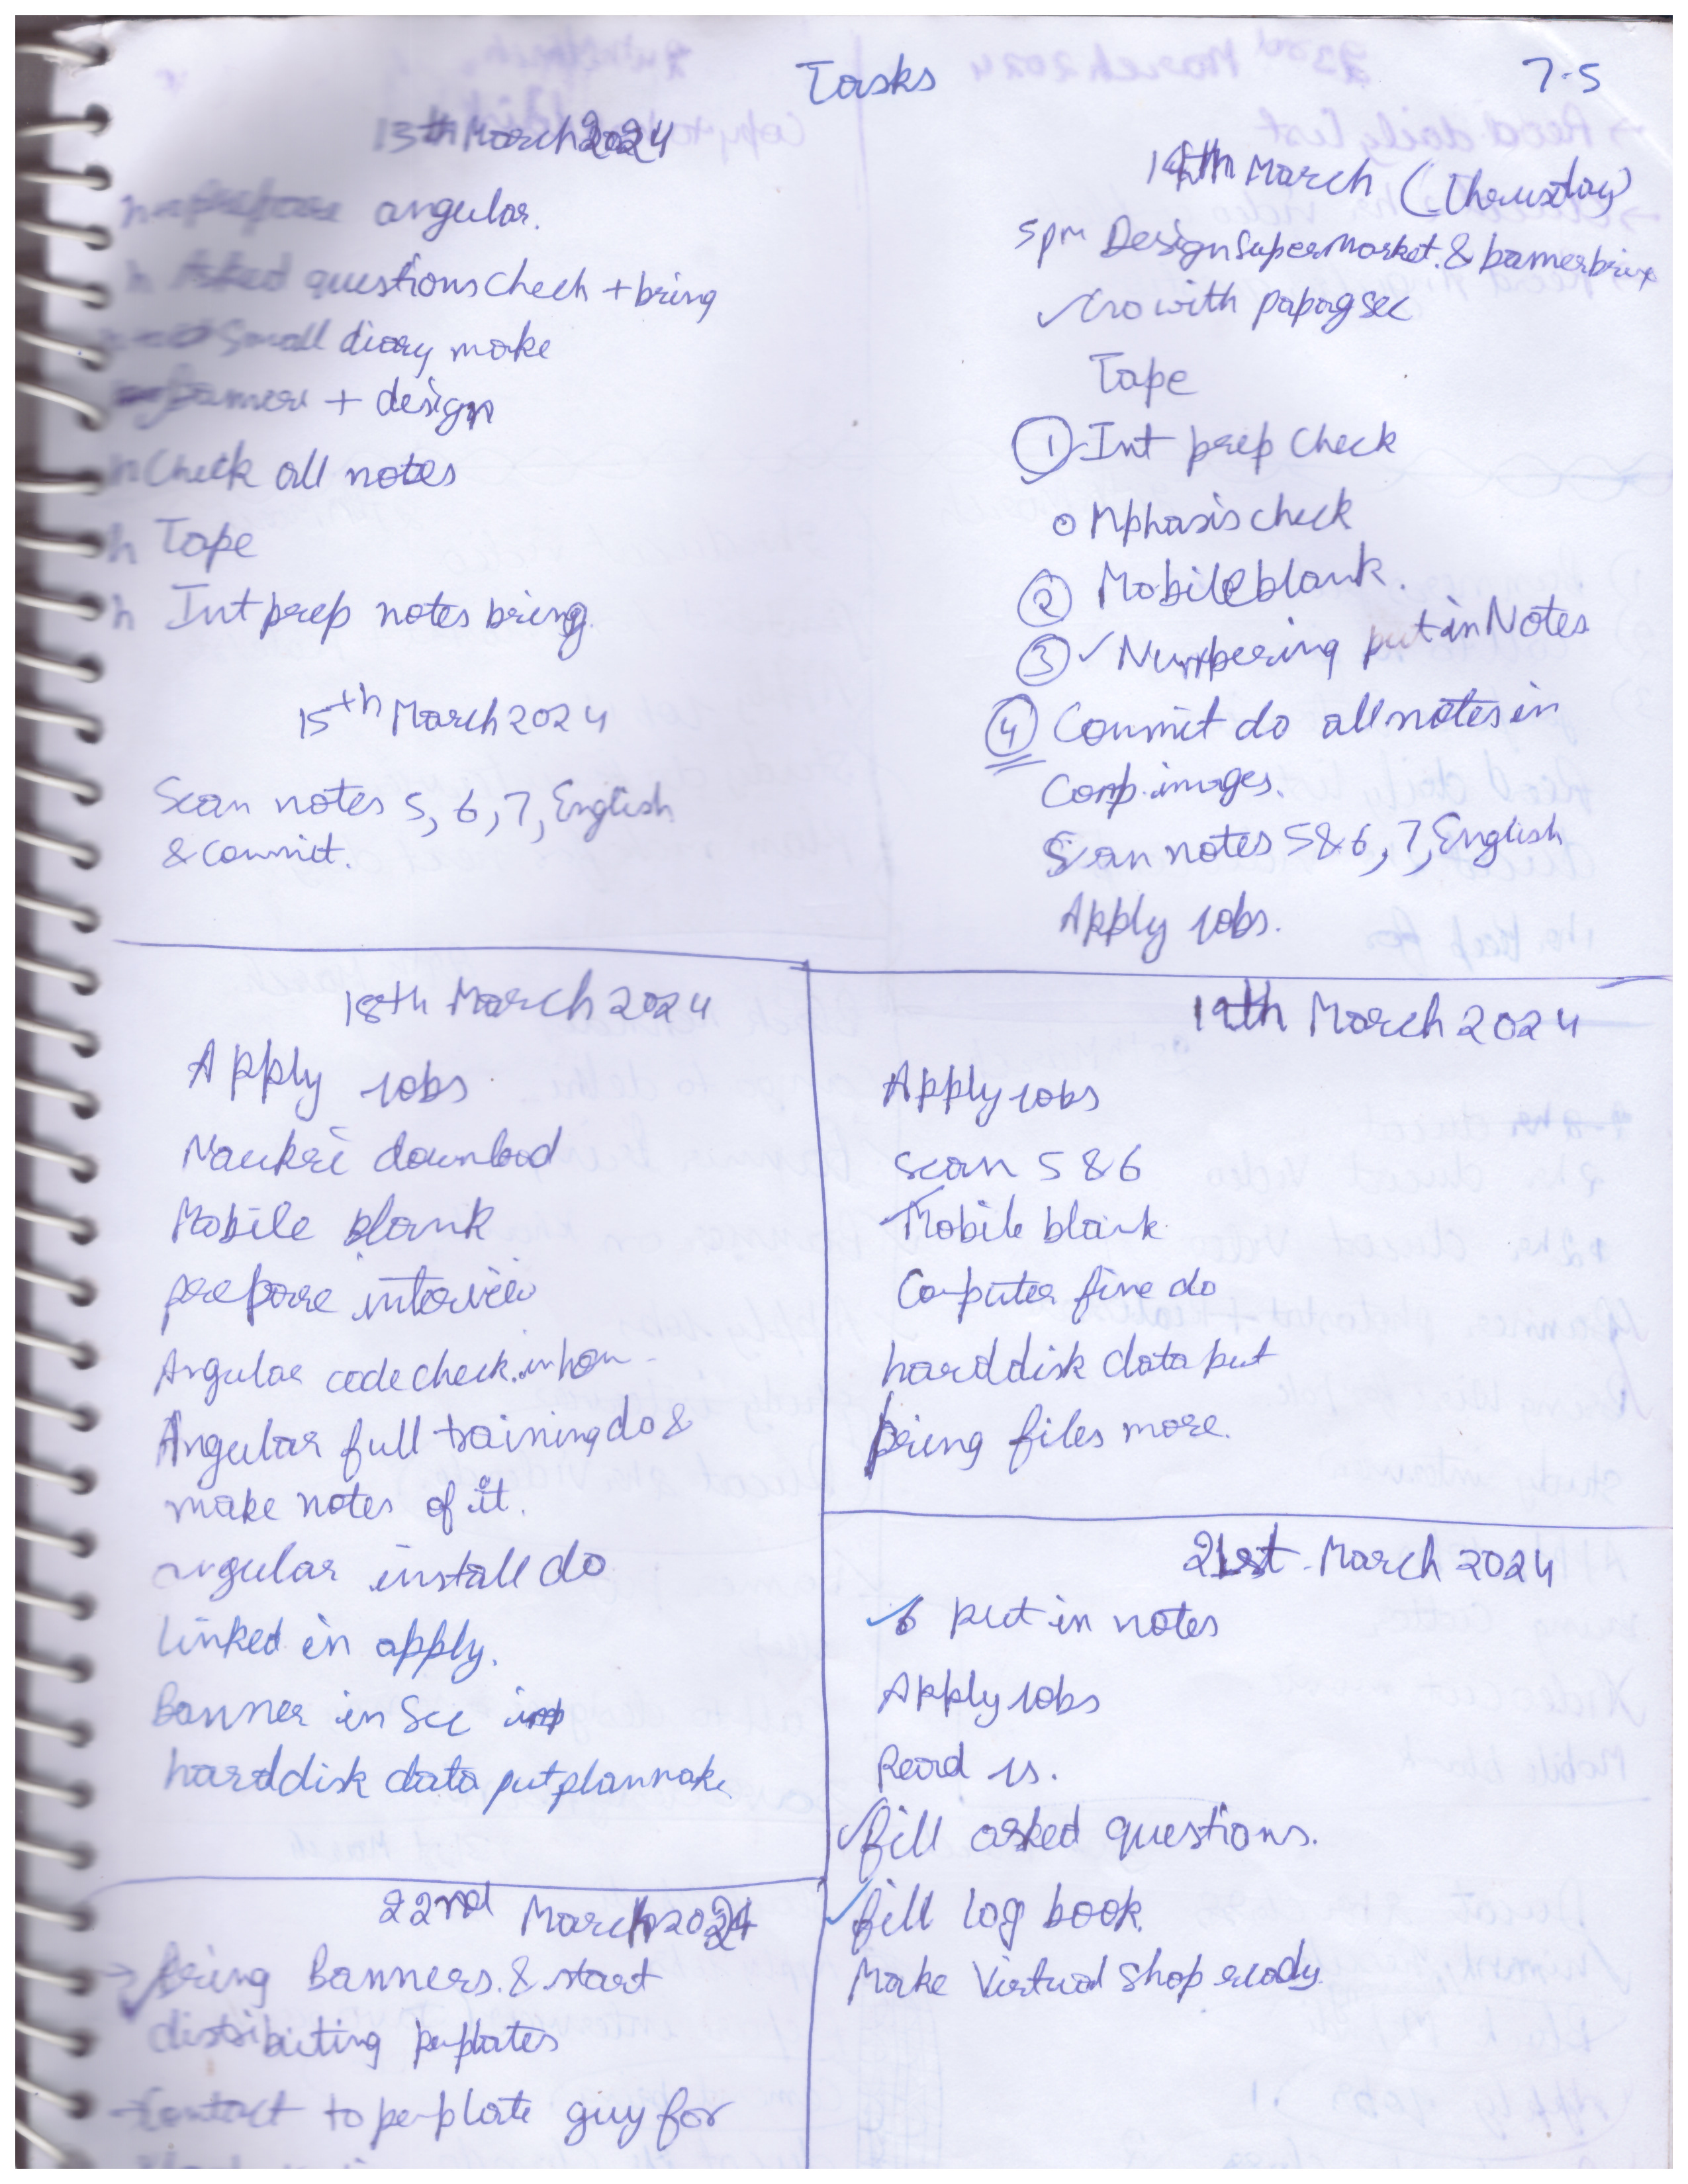 Tasks
7.5
13th March 2024
prepare angular.
Asked questions Check + bring
Small diary make
+ design
Check all notes
Tape
Int prep notes bring
15th March 2024
Scan notes 5, 6, 7, English
& commit.
14th March (Thursday)
5pm Design Super Market. &
Go with papa g sec
Tape
① Int prep Check
o Mphasis check
② Mobile blank.
③ ✓ Numbering put in Notes
④ Commit do all notes in
Comp. images.
Scan notes 5 & 6, 7, English
Apply Jobs.
18th March 2024
Apply Jobs
Naukri download
Mobile blank
prepare interview
Angular code check. in
Angular full training do &
make notes of it.
angular install do
Linked in apply.
Banner in Sec imp
harddisk data put plan make
19th March 2024
Apply Jobs
Scan 5 & 6
Mobile blank
Computer fine do
harddisk data put
bring files more.
21st March 2024
✓ 6 put in notes
Apply Jobs
Read Js.
✓ fill asked questions.
✓ fill log book.
Make Virtual Shop ready
22nd March 2024
→ Bring Banners. & start
distributing pamplates
→ Contact to pamplate guy for